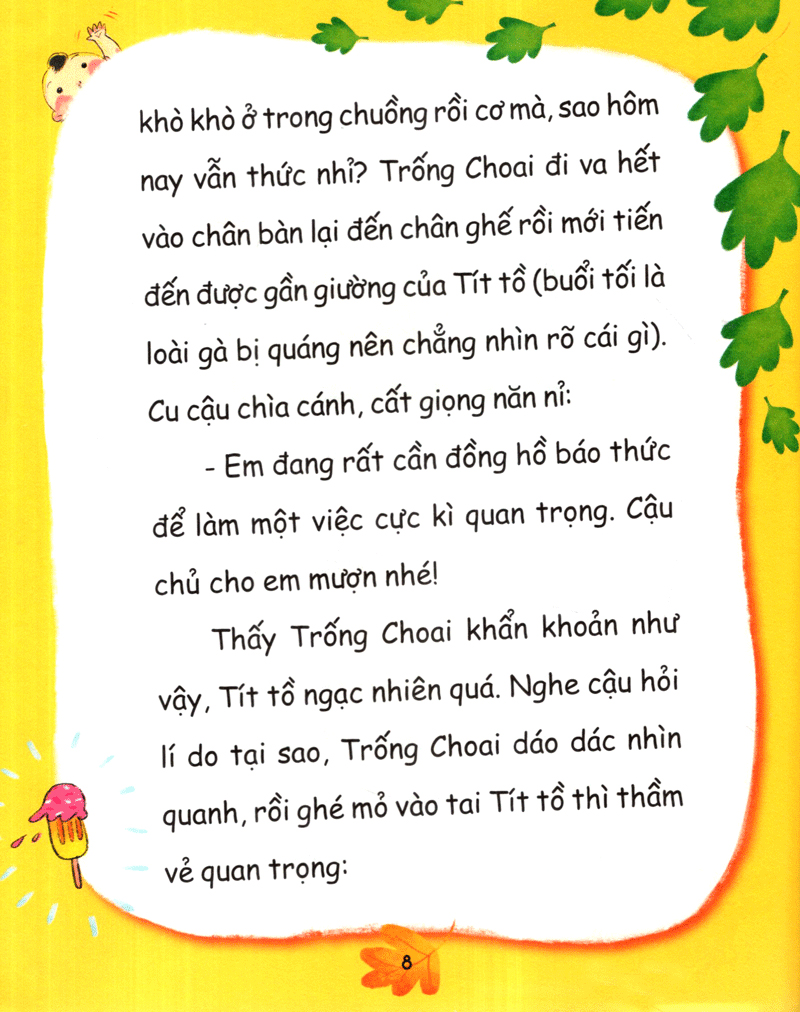 khò khò ở trong chuồng rồi cơ mà, sao hôm
nay vẫn thức nhỉ? Trống Choai đi va hết
vào chân bàn lại đến chân ghế rồi mới tiến
đến được gần giường của Tít tồ (buổi tối là
loài gà bị quáng nên chẳng nhìn rõ cái gì).
Cu cậu chìa cánh, cất giọng năn nỉ:
- Em đang rất cần đồng hồ báo thức
để làm một việc cực kì quan trọng. Cậu
chủ cho em mượn nhé!
Thấy Trống Choai khẩn khoản như
vậy, Tít tồ ngạc nhiên quá. Nghe cậu hỏi
lí do tại sao, Trống Choai dáo dác nhìn
quanh, rồi ghé mỏ vào tai Tít tồ thì thầm
vẻ quan trọng:
8